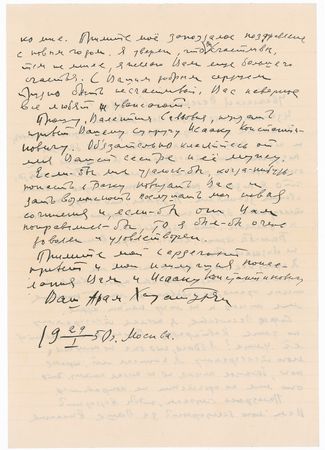 ко мне. Примите моё запоздалое поздравление
с новым годом. Я уверен, что Вы счастливы,
тем не менее, я желаю Вам ещё большего
счастья. С Вашим добрым сердцем
трудно быть несчастливой. Вас наверное
все любят и уважают.
Прошу, Валентина Саввовна, передать
привет Вашему супругу Исааку Константи-
новичу. Обязательно кланяйтесь от
меня Вашей сестре и её мужу.
Если-бы мне удалось-бы, когда-нибудь
попасть в Баку повидать Вас и
дать возможность послушать мои новые
сочинения и, если-бы они Вам
понравились-бы, то я был-бы очень
доволен и удовлетворен.
Примите мой сердечный
привет и мои наилучшие поже-
лания Вам и Исааку Константиновичу
Ваш Арам Хачатурян
19 29/I 50 г. Москва.